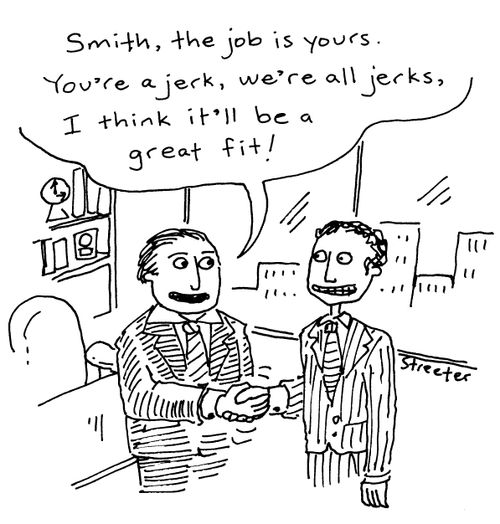 Smith, the job is yours.
You're a jerk, we're all jerks,
I think it'll be a
great fit!
Streeter